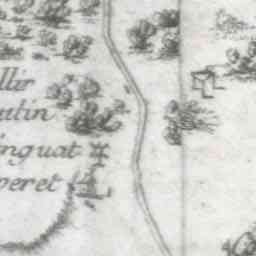 llir
utin
inguat
peret